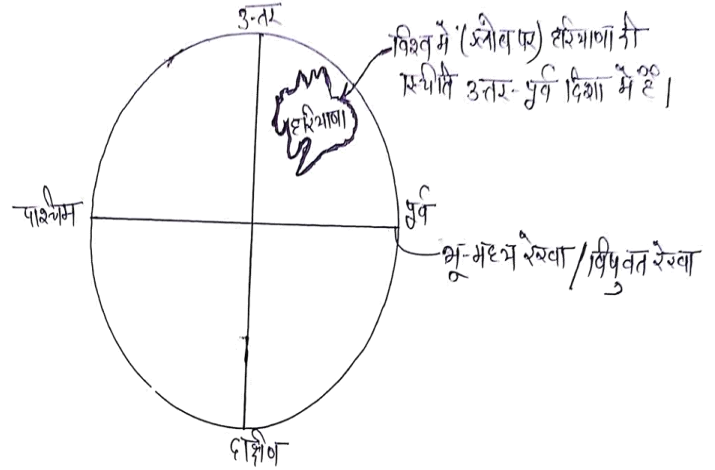 उत्तर
विश्व में (ग्लोब पर) हरियाणा की
स्थिति उत्तर-पूर्व दिशा में है।
हरियाणा
पश्चिम
पूर्व
भू-मध्य रेखा/विषुवत रेखा
दक्षिण